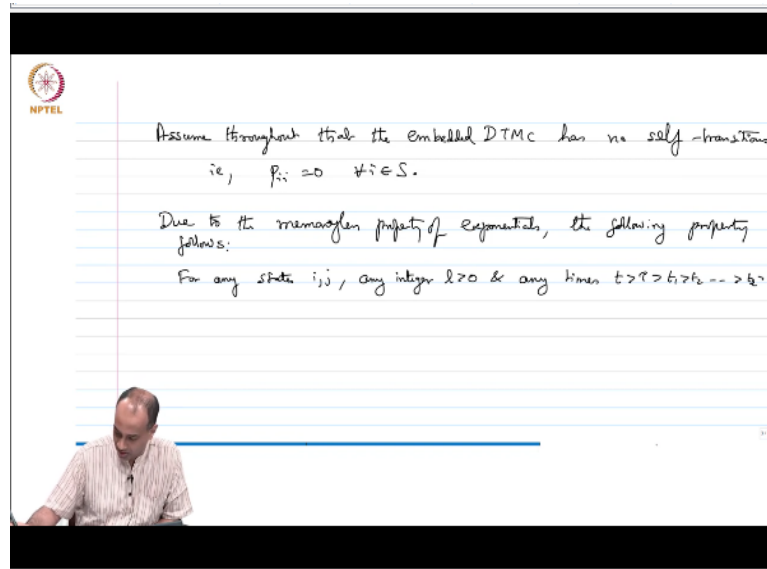 NPTEL
Assume throughout that the embedded DTMC has no self-transitions
ie, Pii = 0 ∀ i ∈ S.
Due to the memoryless property of exponentials, the following property
follows:
For any states i, j, any integer l > 0 & any times t > τ > t1 > t2 --- > tl >